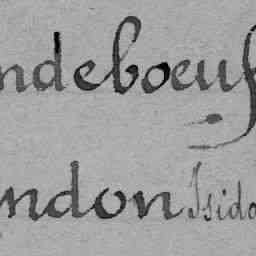 ndeboeuf
ndon Isido